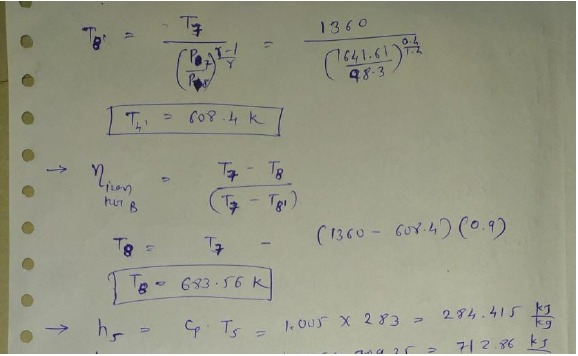 T8' = T7 / (P7/P8)^(γ-1/γ) = 1360 / (1641.61/98.3)^(0.4/1.4)
T4' = 608.4 K
→ ηisen tur B = T7 - T8 / (T7 - T8')
T8 = T7 - (1360 - 608.4)(0.9)
T8 = 683.56 K
→ h5 = Cp T5 = 1.005 × 283 = 284.415 kJ/kg
= 712.86 kJ